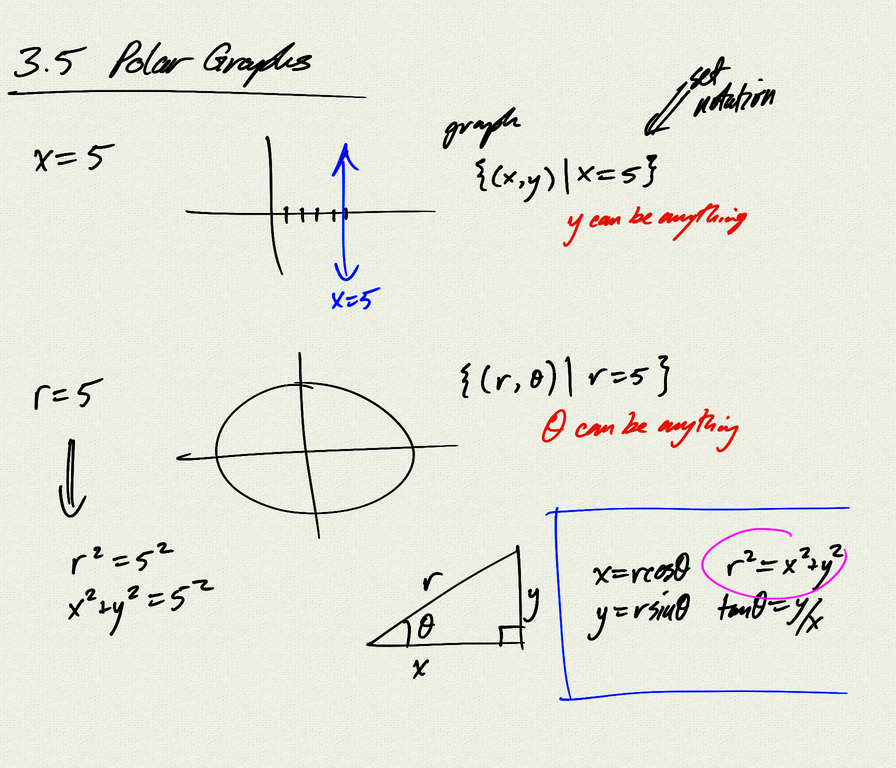 3.5 Polar Graphs
set
notation
graph
x = 5
{(x,y) | x = 5}
y can be anything
x=5
r = 5
{(r, θ) | r = 5}
θ can be anything
r² = 5²
x²+y² = 5²
r
θ
y
x
x = rcosθ r² = x²+y²
y = rsinθ tanθ = y/x